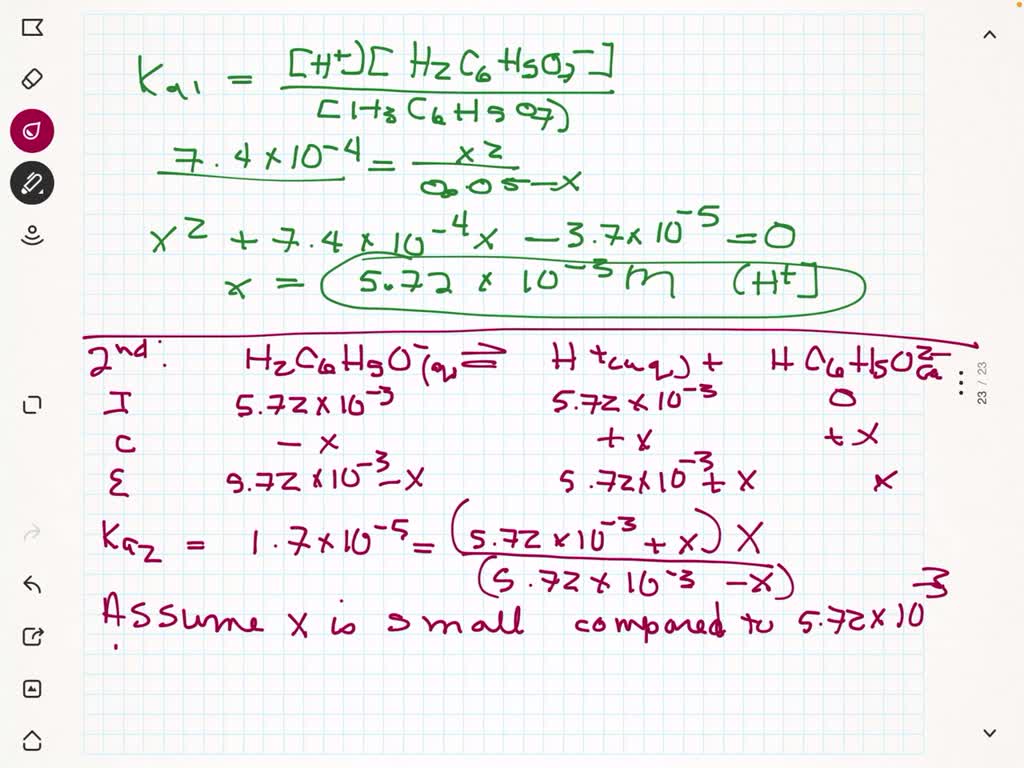 Ka1 = [H+][H2C6H5O7-]
[H3C6H5O7]
7.4 × 10-4 = x2
0.05-x
x2 + 7.4 × 10-4x - 3.7 × 10-5 = 0
x = 5.72 × 10-3 m (H+]
2nd: H2C6H5O-(aq) ⇌ H+(aq) + HC6H5O2-
I 5.72×10-3 5.72×10-3 0
C - x + x + x
E 5.72×10-3-x 5.72×10-3+x x
Ka2 = 1.7×10-5 = (5.72×10-3 + x) x
(5.72×10-3 - x)
Assume x is small compared to 5.72×10-3
23 / 23